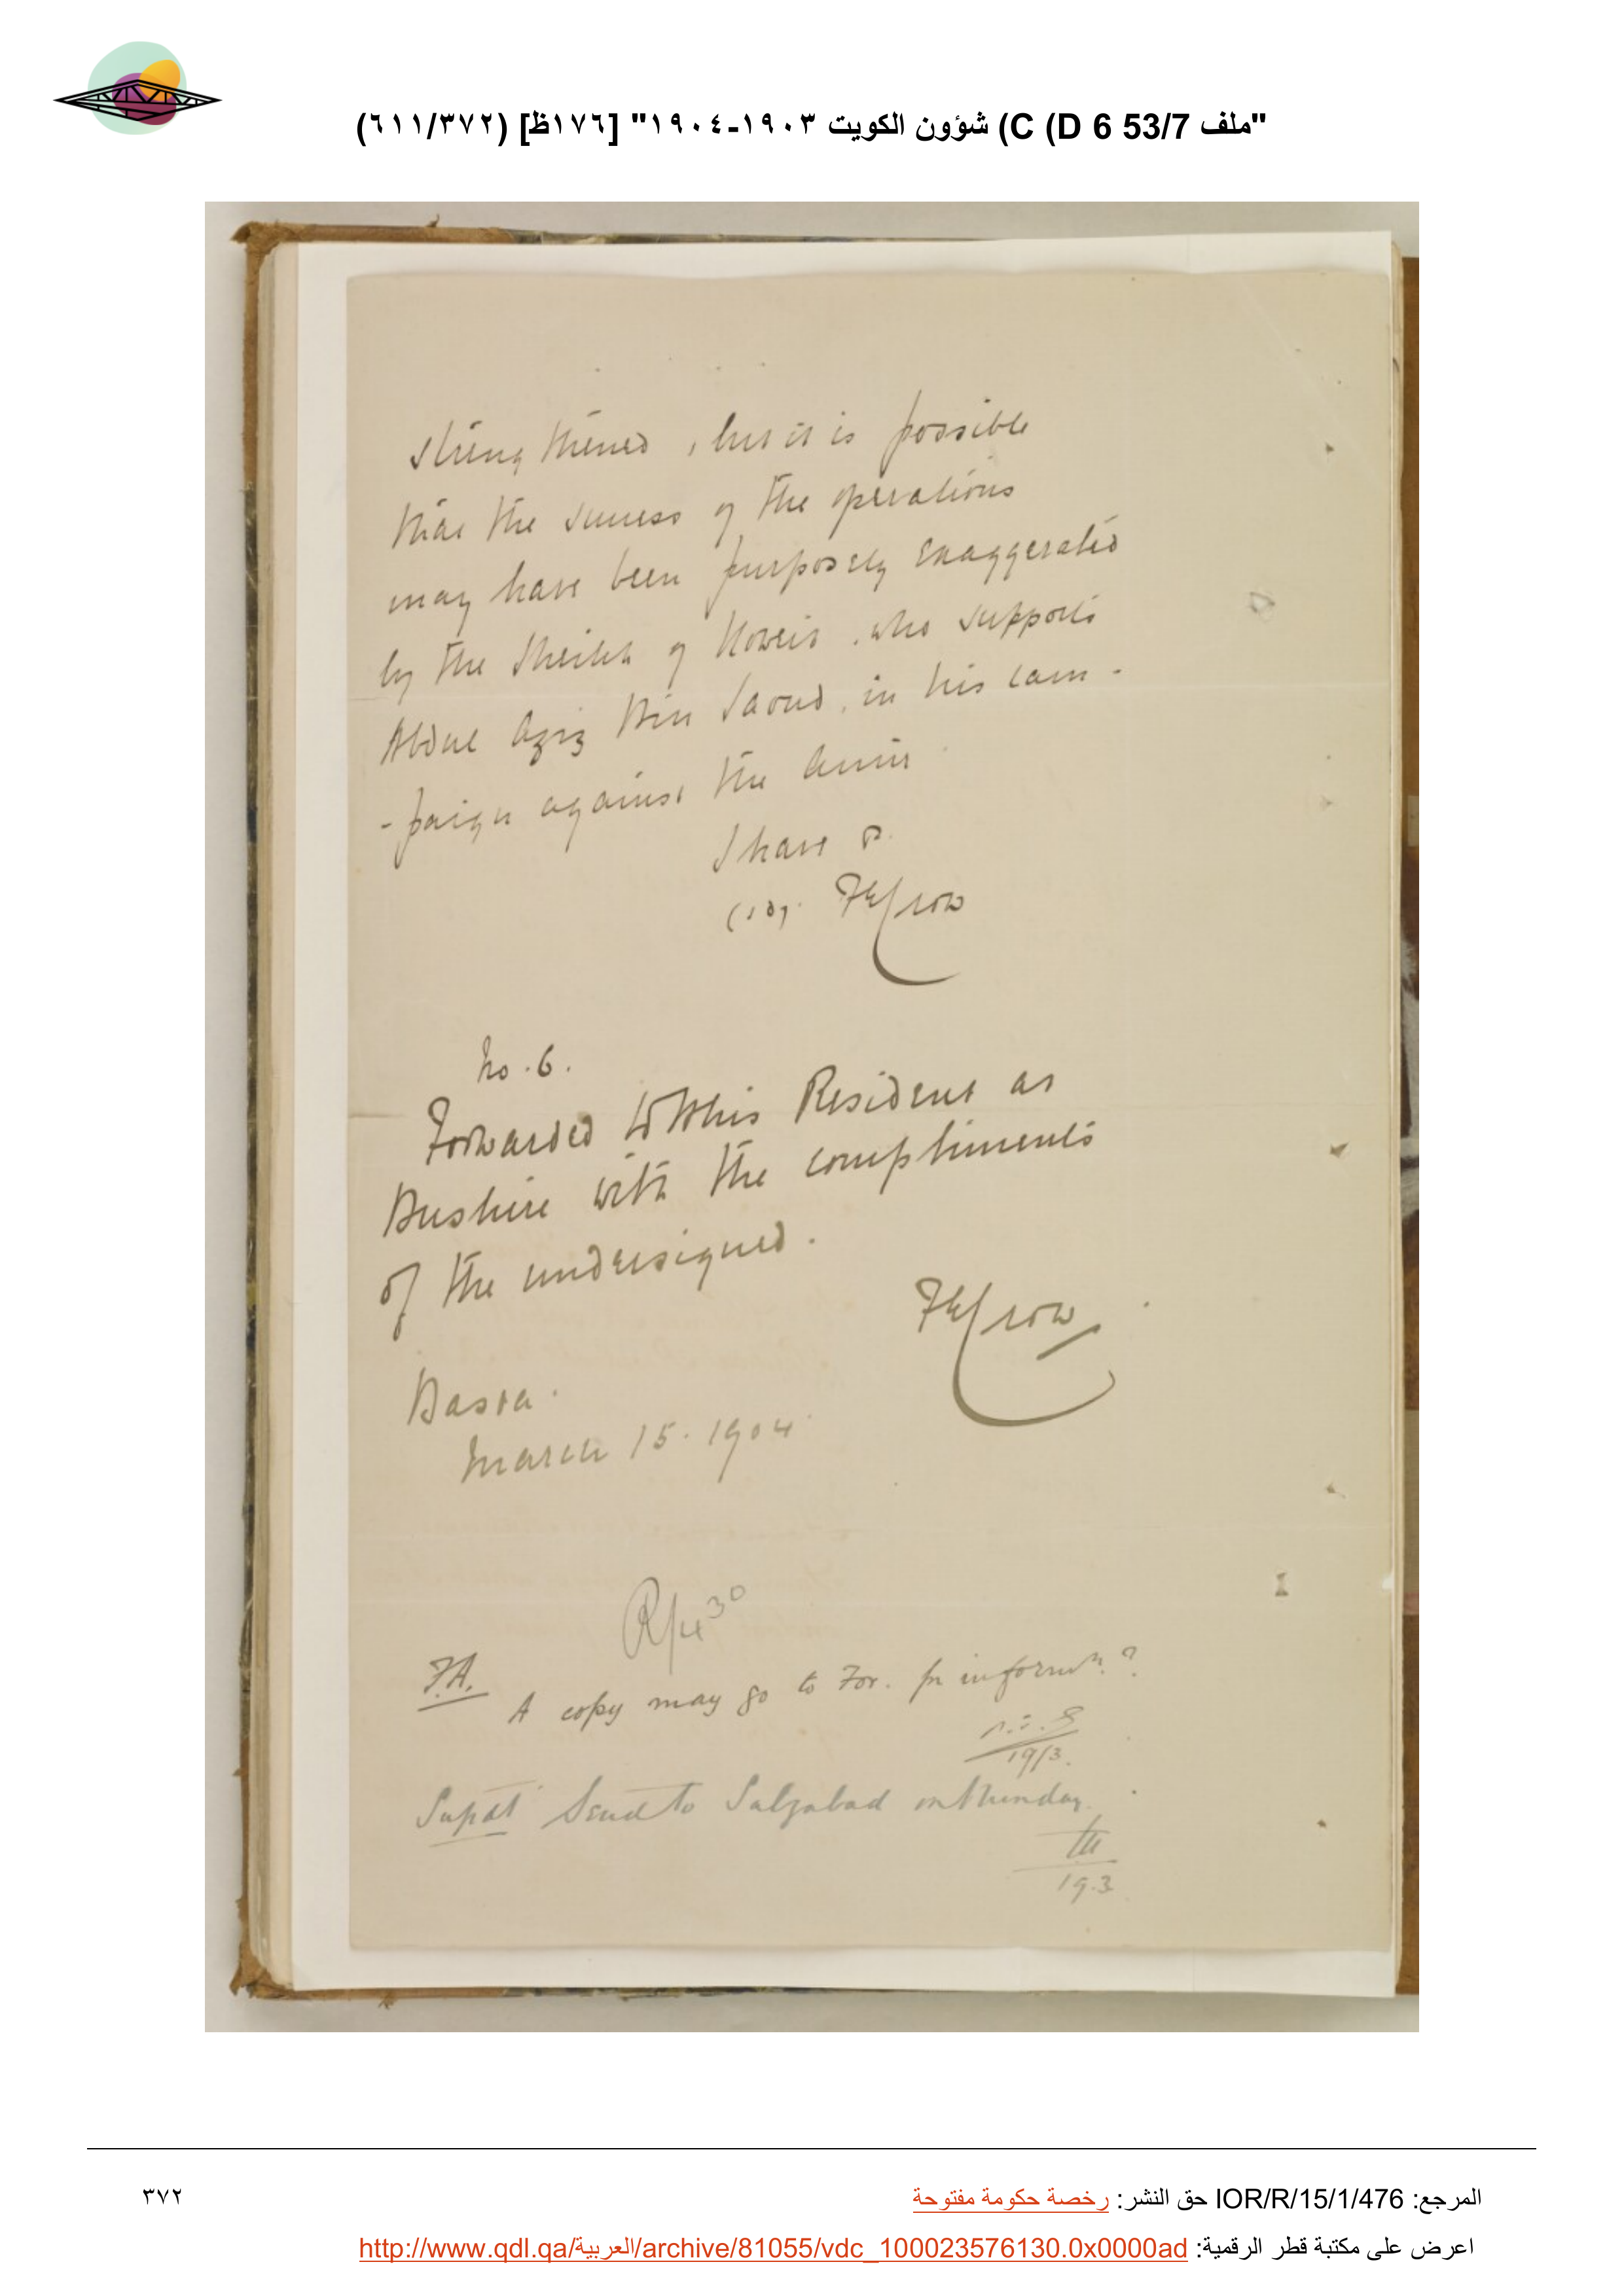 "ملف 53/7 D 6) C) شؤون الكويت ١٩٠٣-١٩٠٤" [١٧٦ظ] (٦١١/٣٧٢)
strengthened, but it is possible
that the success of the operations
may have been purposely exaggerated
by the Sheikh of Koweit, who supports
Abdul Aziz Bin Saoud, in his cam-
-paign against the Amir
I have &.
(sd). FECrow
No. 6.
Forwarded to His Resident at
Bushire with the compliments
of the undersigned.
FECrow
Basra.
March 15. 1904
R/4 30
F.A.
A copy may go to For. for informn. ?
19/3.
Supdt Send to on Monday.
19.3
المرجع: IOR/R/15/1/476 حق النشر: رخصة حكومة مفتوحة
٣٧٢
اعرض على مكتبة قطر الرقمية: http://www.qdl.qa/العربية/archive/81055/vdc_100023576130.0x0000ad